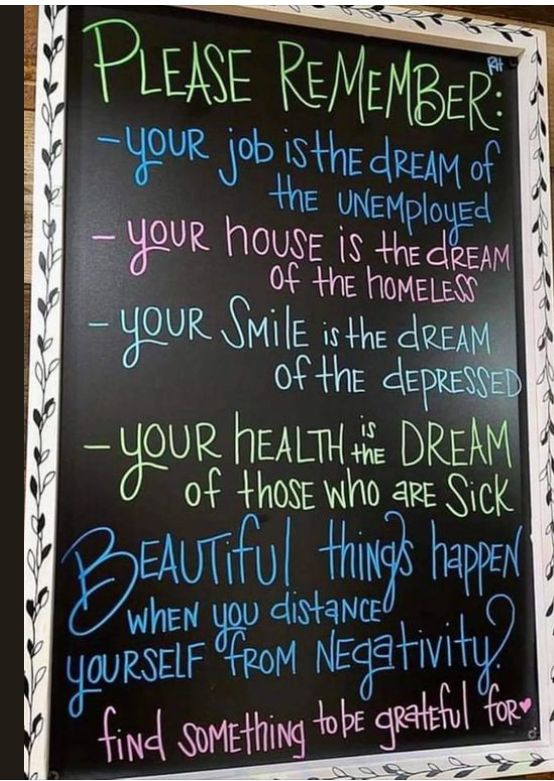 PLEASE REMEMBER:
RH
-YOUR job is the dREAM of
the UNEMployed
- YOUR hOUSE is the dREAM
Of the hOMELESS
- YOUR SMilE is the dREAM
Of the dEPRESSED
- YOUR hEALTH is the DREAM
of those who ARE Sick
BEAUTiful things happen
when you distance
YOURSELF FROM NEgativity!
find SOMEthing to be gRatEful for♥